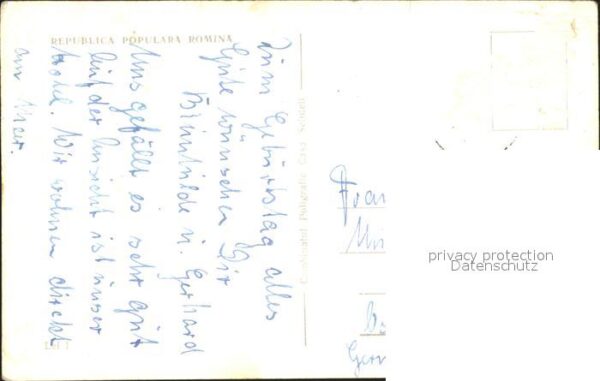 REPUBLICA POPULARA ROMINA
Zum Geburtstag alles
Gute wünschen Dir
Brunhilde u. Gerhard
Uns gefällt es sehr gut
Auf der Ansicht ist unser
Hotel. Wir wohnen direkt
am Meer.
Combinatul Poligrafic Casa Scinteii
Frau
privacy protection
Datenschutz